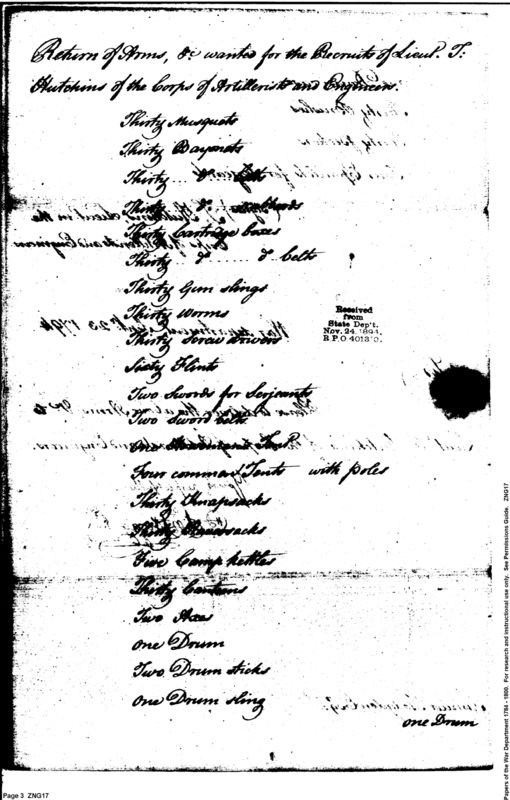 Return of Arms, &c wanted for the Recruits of Lieut. T:
Hutchins of the Corps of Artillerists and Engineers.
Thirty Musquets
Thirty Bayonets
Thirty .. do .. belts
Thirty .. do .. scabbards
Thirty Cartridge boxes
Thirty do ...... do belts
Thirty Gun slings
Thirty Worms
Thirty Screw drivers
Sixty Flints
Two Swords for Serjeants
Two Sword belts
one Tent
Four common Tents with poles
Thirty Knapsacks
Thirty Haversacks
Five Camp kettles
Thirty Canteens
Two Axes
one Drum
Two Drum sticks
one Drum sling
one Drum
Received
from
State Dep't.
Nov. 24. 1894.
R P.O 401310.
Page 3 ZNG17
Papers of the War Department 1784 - 1800. For research and instructional use only. See Permissions Guide. ZNG17